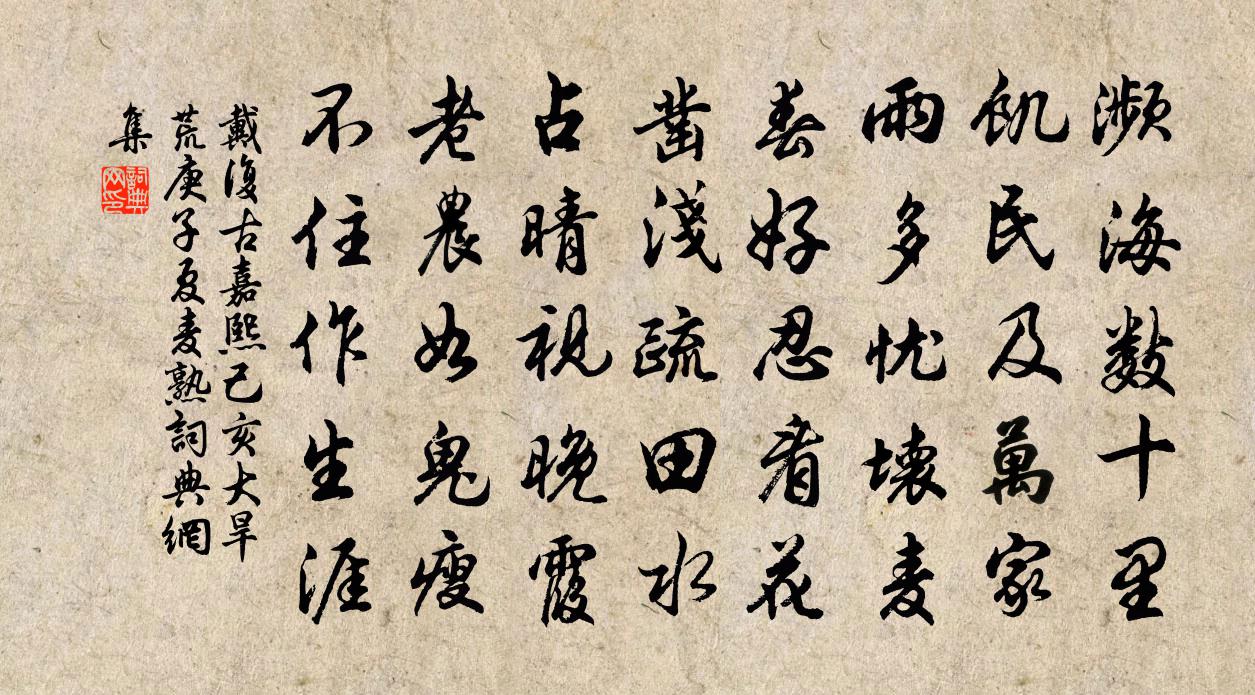 瀕海數十里
飢民及萬家
雨多憂壞麦
春好忍看花
凿淺疏田水
占晴視晚霞
老農如鬼瘦
不住作生涯
戴復古嘉熙己亥大旱
荒庚子夏麦熟詞典網
集
詞典网印